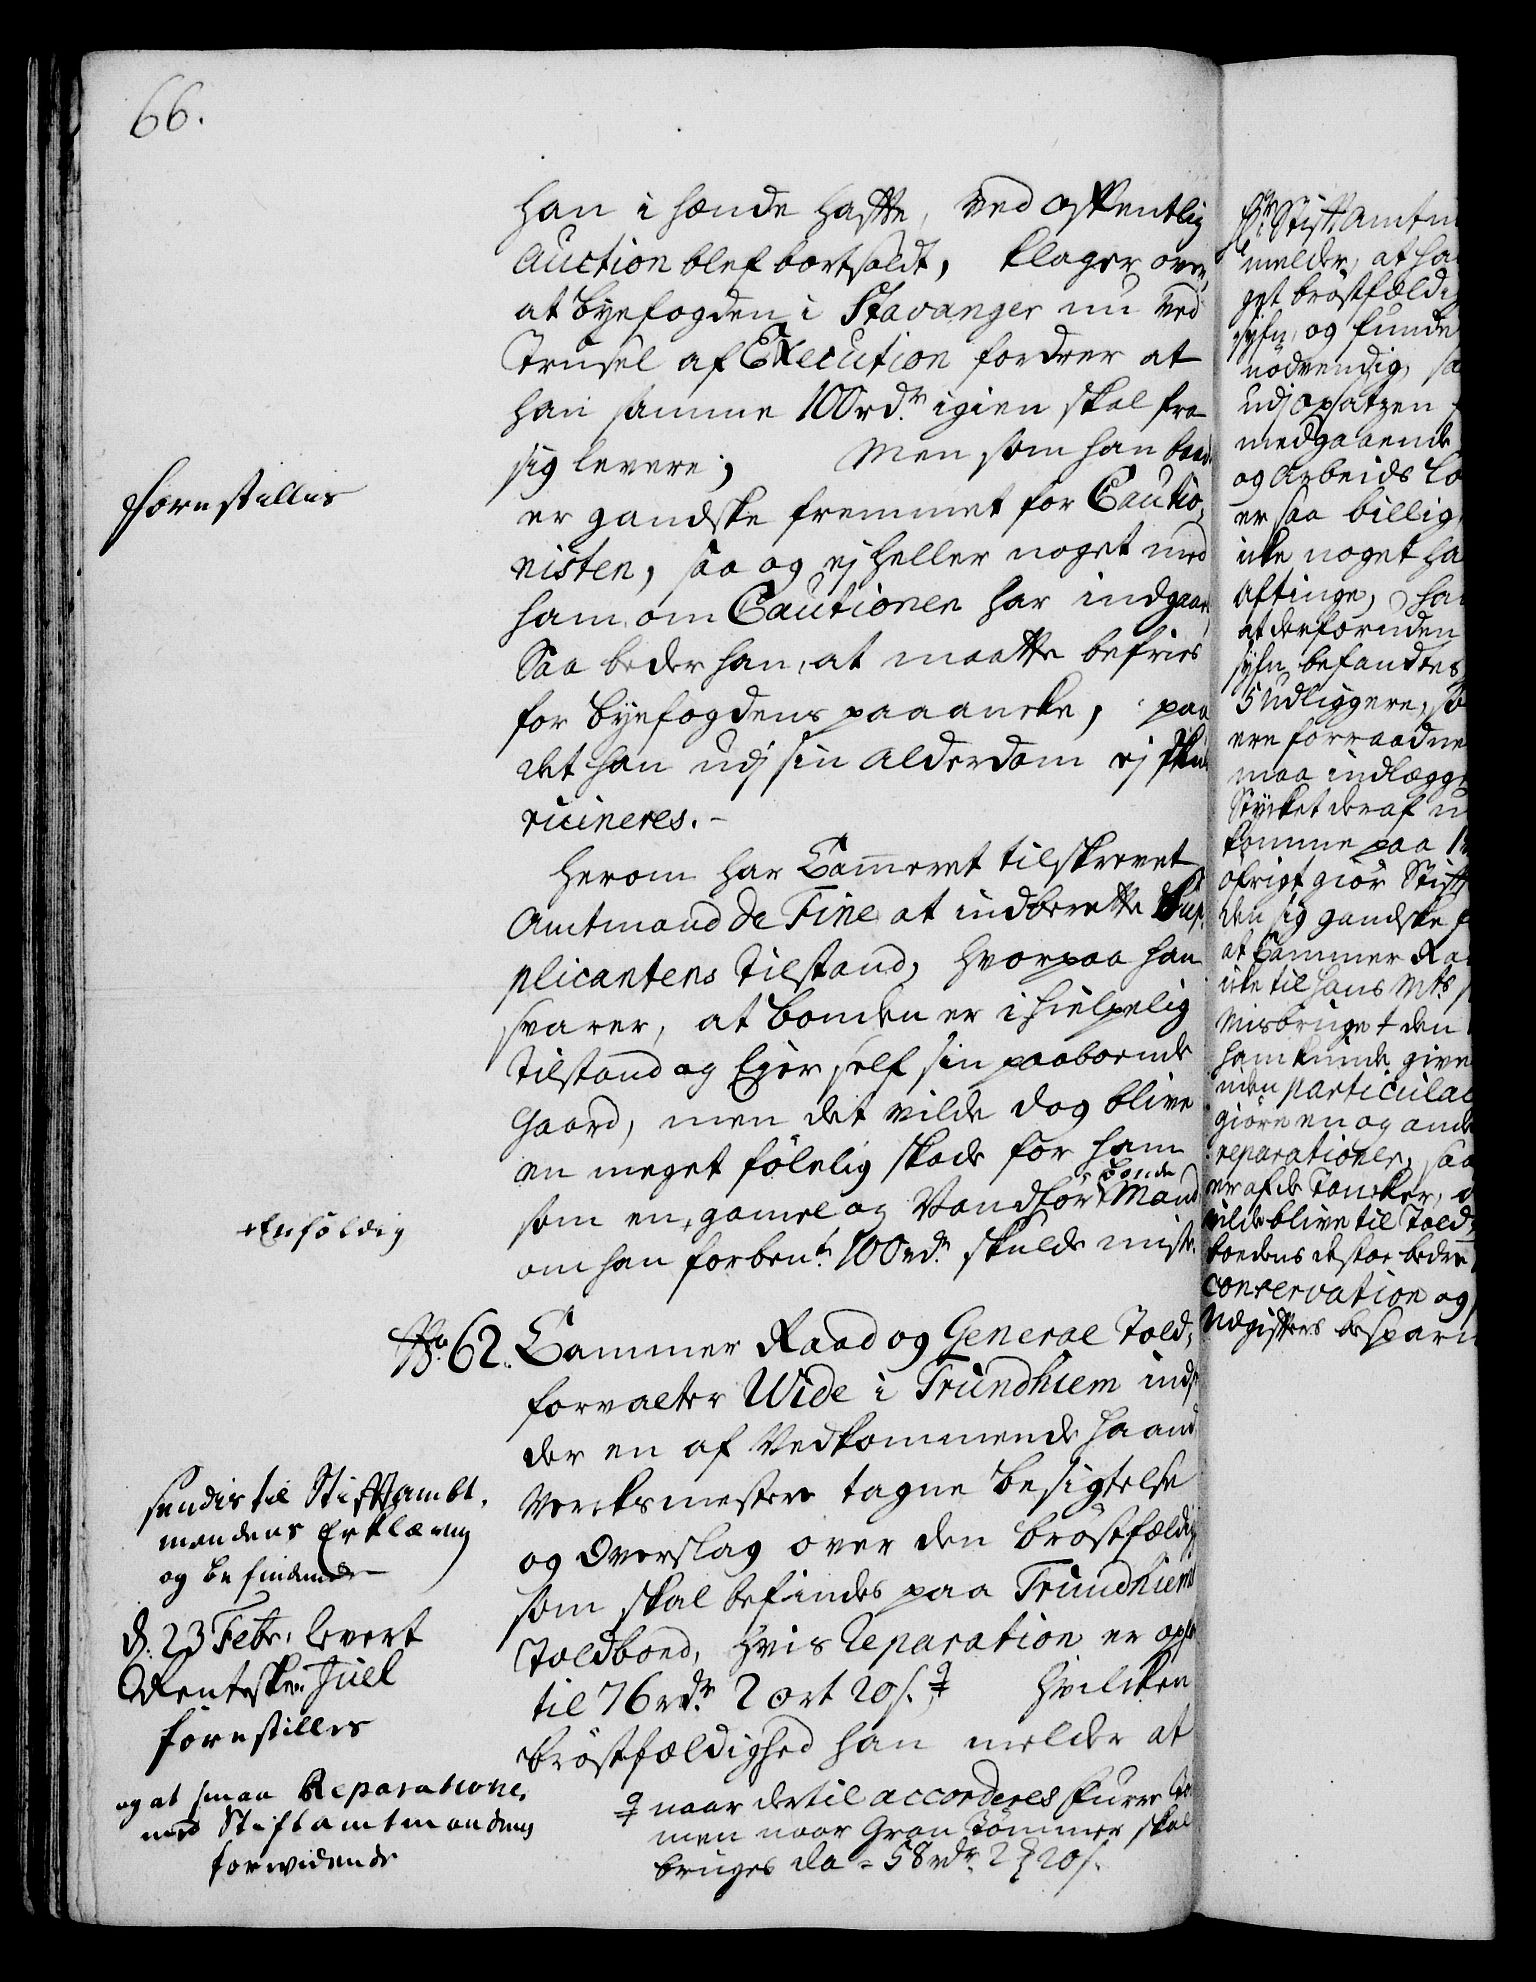 66.
han i hænde hafte, ved offentlig
Auction blef bortsoldt, klager over,
at Byefogden i Stavanger nu ved
Trusel af Execution fordrer at
han samme 100 rdr. igien skal fra
sig levere; Men som han baade
er gandske fremmet for Cautio-
nisten, saa og ej heller noget med
ham om Cautionen har indgaaet,
Saa beder han, at maatte befries
for Byefogdens paaancke, paa
det han udj sin Alderdom ej skulde
ruineres.-
Herom har Cammeret tilskrevet
Amtmand de Fine at indberette Sup-
plicantens Tilstand, hvorpaa han
svarer, at bonden er i hielpelig
Tilstand og Ejer self sin paaboende
Gaard, men det vilde dog blive
en meget følelig skade for ham
som en gamel og Vandført Bonde Mand
om han forben.te 100 rdr. skulde miste.
forestilles
+Enfoldig
No. 62. Cammer Raad og General Told-
forvalter Wide i Trundhiem indsen-
der en af Vedkommende Haand
Vercksmestere tagne Besigtelse
og Overslag over den brøstfældig
som skal befindes paa Trundhiems
Toldboed, hvis Reparation er opsat
til 76 rdr. 2 ort 20 s. hvilcken
brøstfældighed han melder at
naar dertil accorderes Furre
men naar Gran Tømmer skal
bruges da = 58 rdr. 2 20 s.
sendis til Stiftambt-
mandens Erklæring
og befindende
d. 23 Febr. levert
Renteskr. Juel
forestilles
og at smaa Reparationer
med Stiftamtmandens
forevidende
Hr. Stiftamtm
melder, at ha
get brøstfældig
syn, og funde
nødvendig, sa
udj opsatzen
medgaaende
og Arbeids Lø
er saa billig,
icke noget ha
aftinge, ha
at der foruden
syn befandtes
5 Udliggere, so
ere forraadne
maa indlægge
Stycket deraf u
komme paa 1
øfrigt giør Stift
den sig gandske f
at Cammer Raa
icke til Hans Mts.
Misbruget den
ham kunde give
men particular
giøre en og anden
reparationer, saa
er af de Tancker, a
vilde blive til Told-
boedens destoe bedre
conservation og
Udgifters besparelse